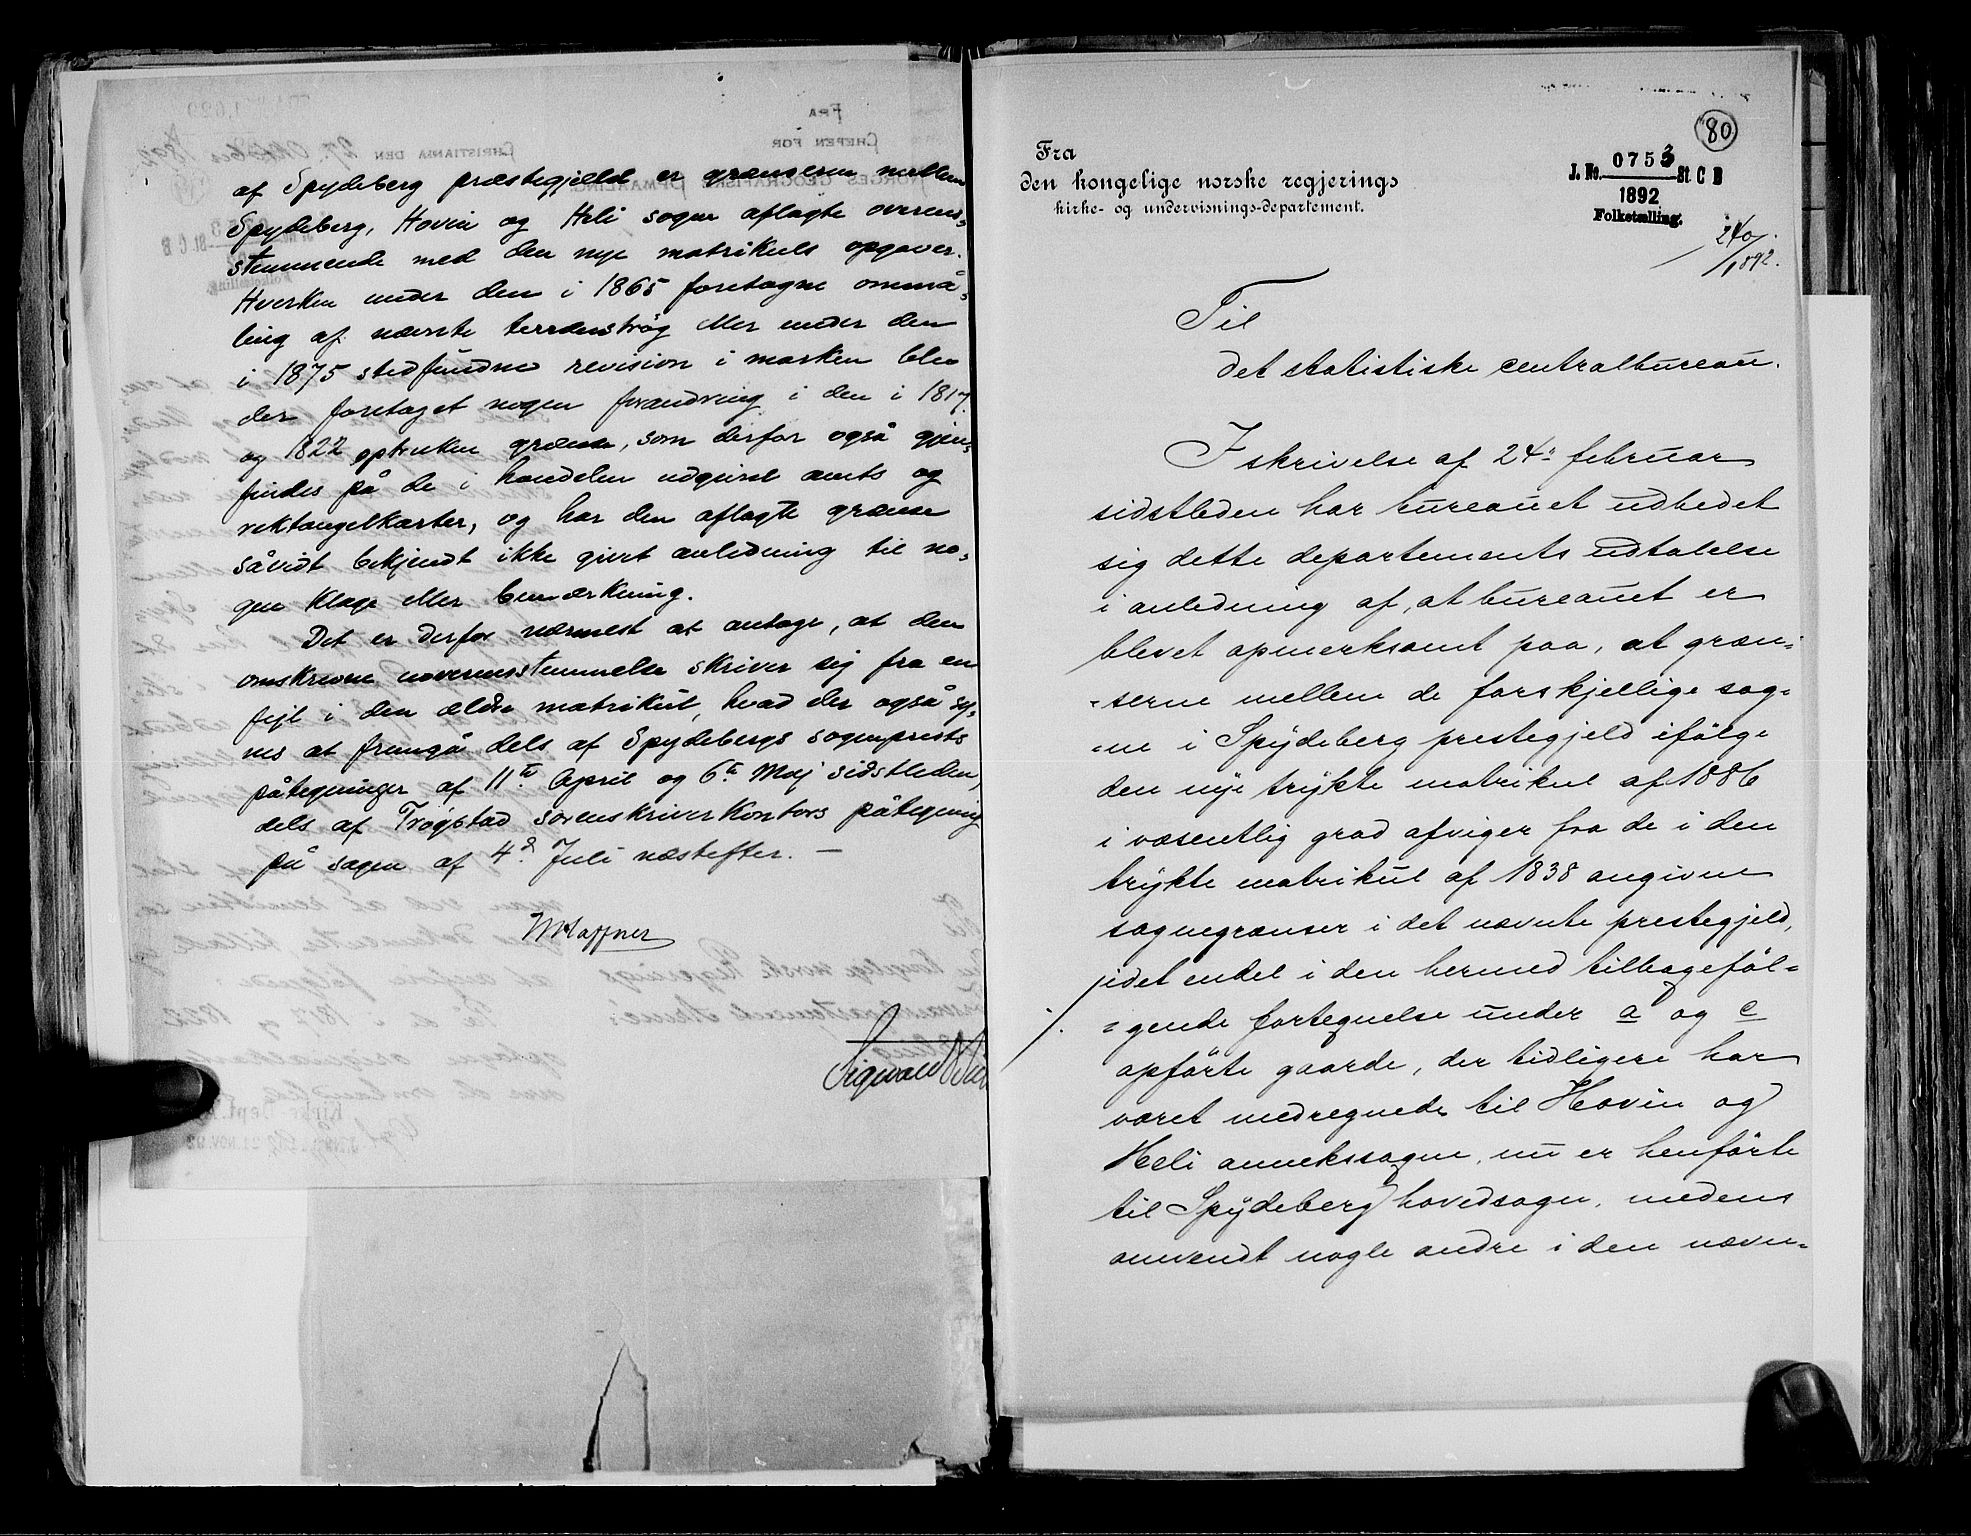 af Spydeberg præstegjeld er grænserne mellem
Spydeberg, Hovin og Heli sogne aflagte overens-
stemmende med den nye matrikuls opgaver.
Hverken under den i 1865 foretagne ommå-
ling af nævnte terrænstrøg eller under den
i 1875 stedfundne revision i marken blev
der foretaget nogen forandring i den i 1817
og 1822 optrukne grænse, som derfor også gjen-
findes på de i handelen udgivne amts og
rektangelkarter, og har den aflagte grænse
såvidt bekjendt ikke givet anledning til no-
gen klage eller bemærkning.
Det er derfor nærmest at antage, at den
omskrevne uoverensstemmelse skriver sig fra en
fejl i den ældre matrikul, hvad der også sy-
nes at fremgå dels af Spydebergs sogneprests
påtegninger af 11te April og 6te Maj sidstleden,
dels af Trøgstad sorenskriverkontors påtegning
på sagen af 4de Juli næstefter. —
Haffner
Sigwald
80
Fra
den kongelige norske regjerings
kirke- og undervisnings-departement.
J. No. 0753 St C B
1892
Folketælling.
24/
1892.
Til
det statistiske centralbureau.
I skrivelse af 24de februar
sidstleden har bureauet udbedet
sig dette departements udtalelse
i anledning af, at bureauet er
blevet opmerksomt paa, at græn-
-serne mellem de forskjellige sog-
-ne i Spydeberg prestegjeld ifølge
den nye trykte matrikul af 1886
i væsentlig grad afviger fra de i den
trykte matrikul af 1838 angivne
sognegrænser i det nævnte prestegjeld,
idet endel i den hermed tilbageføl-
-gende fortegnelse under a og c
opførte gaarde, der tidligere har
været medregnede til Hovin og
Heli annekssogne, nu er henførte
til Spydeberg hovedsogn, medens
omvendt nogle andre i den nævn-